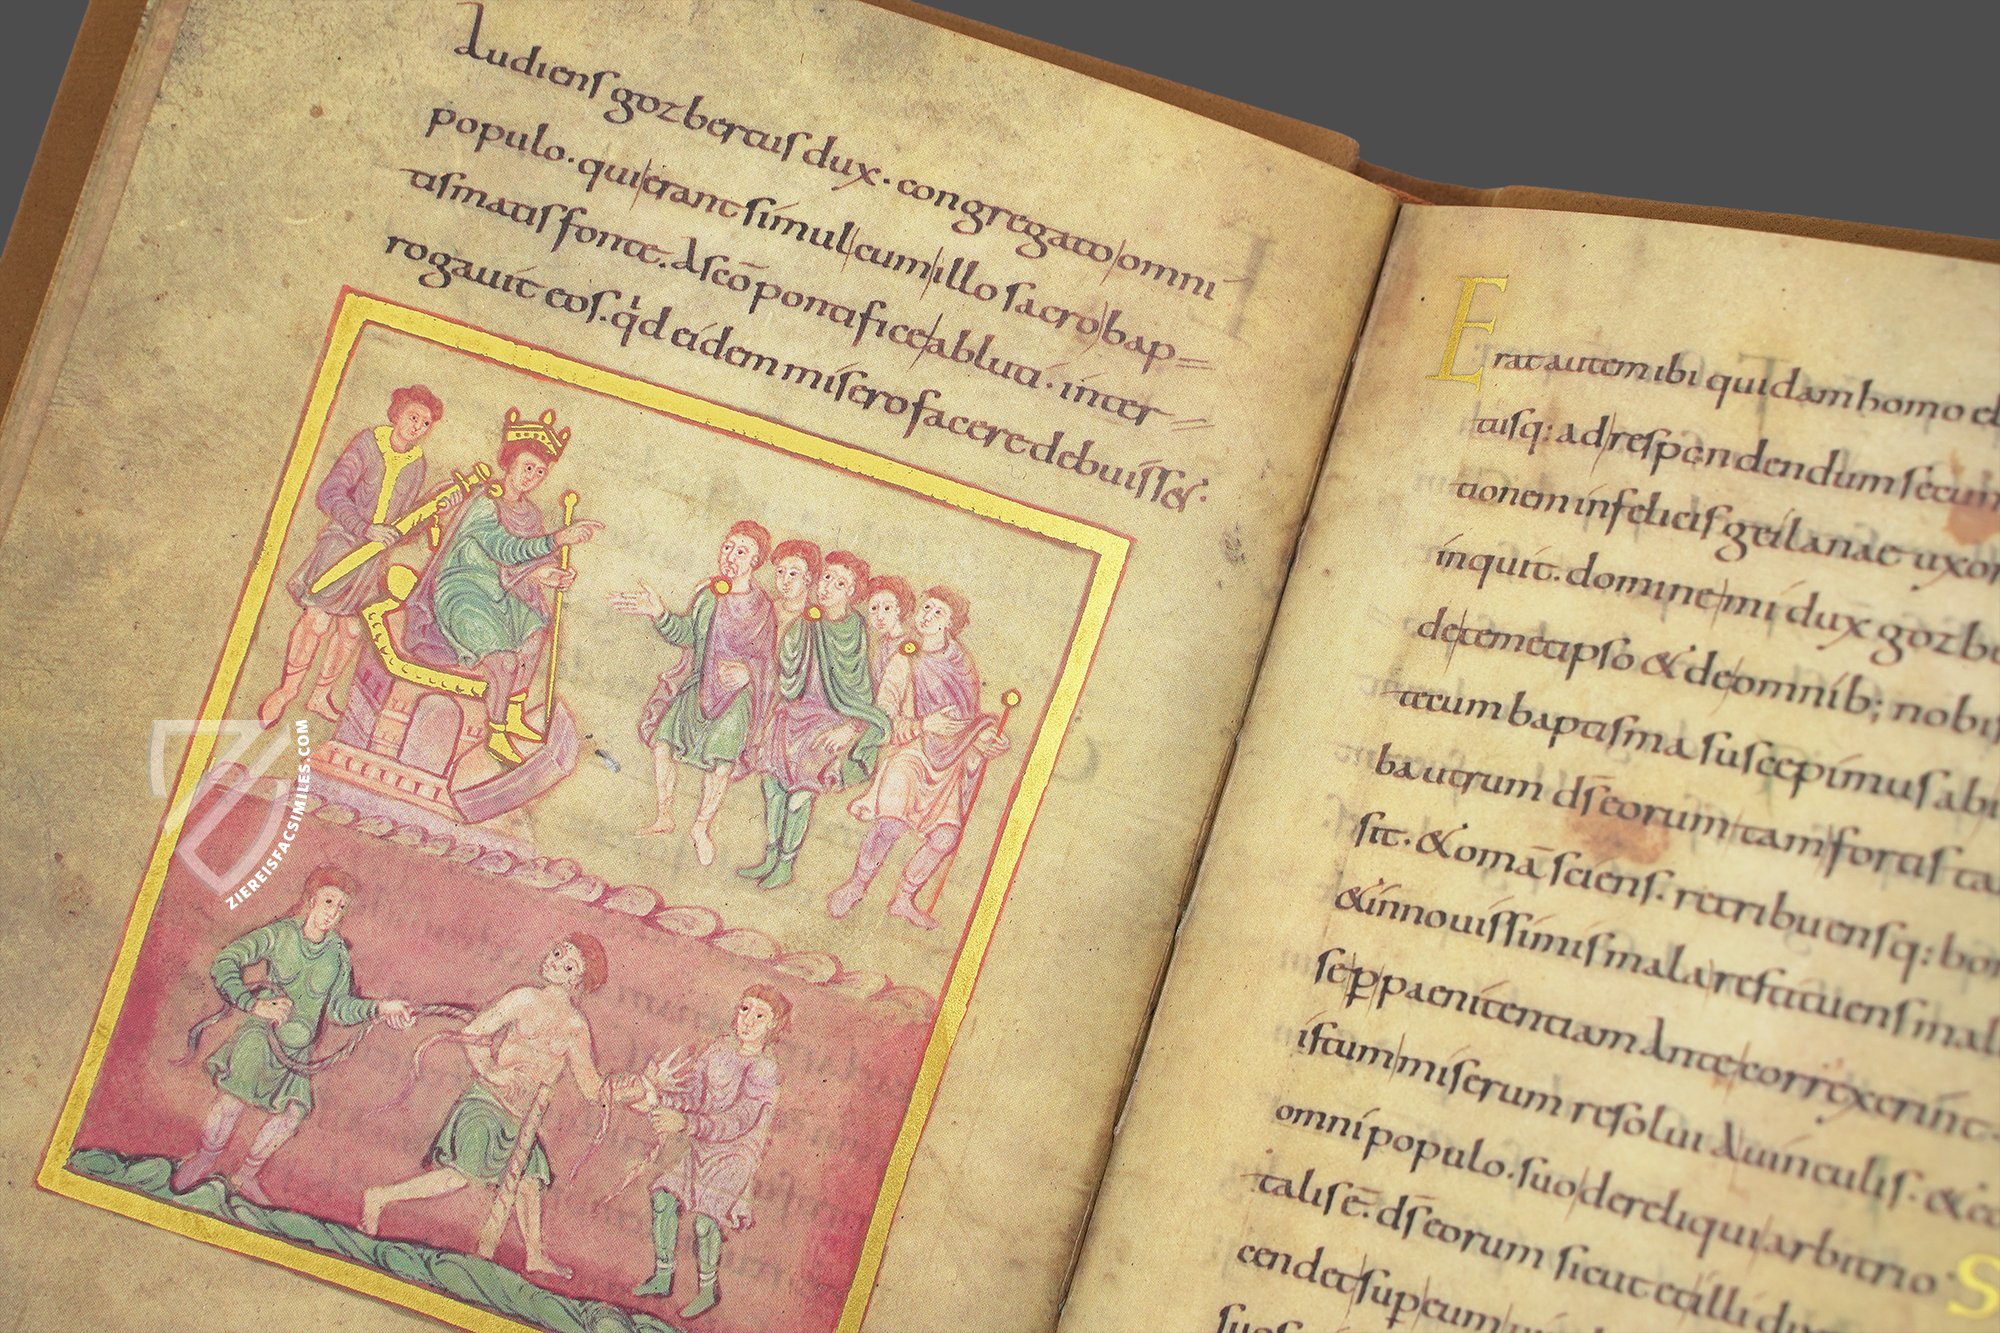 Audiens gozbertus dux. congregato omni
populo. qui erant simul cum illo sacro bap=
tismatis fonte. A sc̄o pontifice abluti. inter=
rogauit eos. qd eidem misero facere debuiss&.
Erat autem ibi quidam homo
tusq: ad respondendum secun
tionem infelicis geilanae uxor
inquit. domine mi dux gozbe
de temetipso & de omnib; nobis
tecum baptisma suscepimus ab
ba utrum ds̄ eorum tam fortis ta
sit. & om̄a sciens. retribuensq: bon
& in nouissimis mala restituens mal
se p paenitentiam Ante correxerint.
istum miserum resolui A uinculis. &
omni populo. suo dereliqui arbitrio S
talis ē. ds̄ eorum sicut et illi
cendet sup eum
ZIEREISFACSIMILES.COM